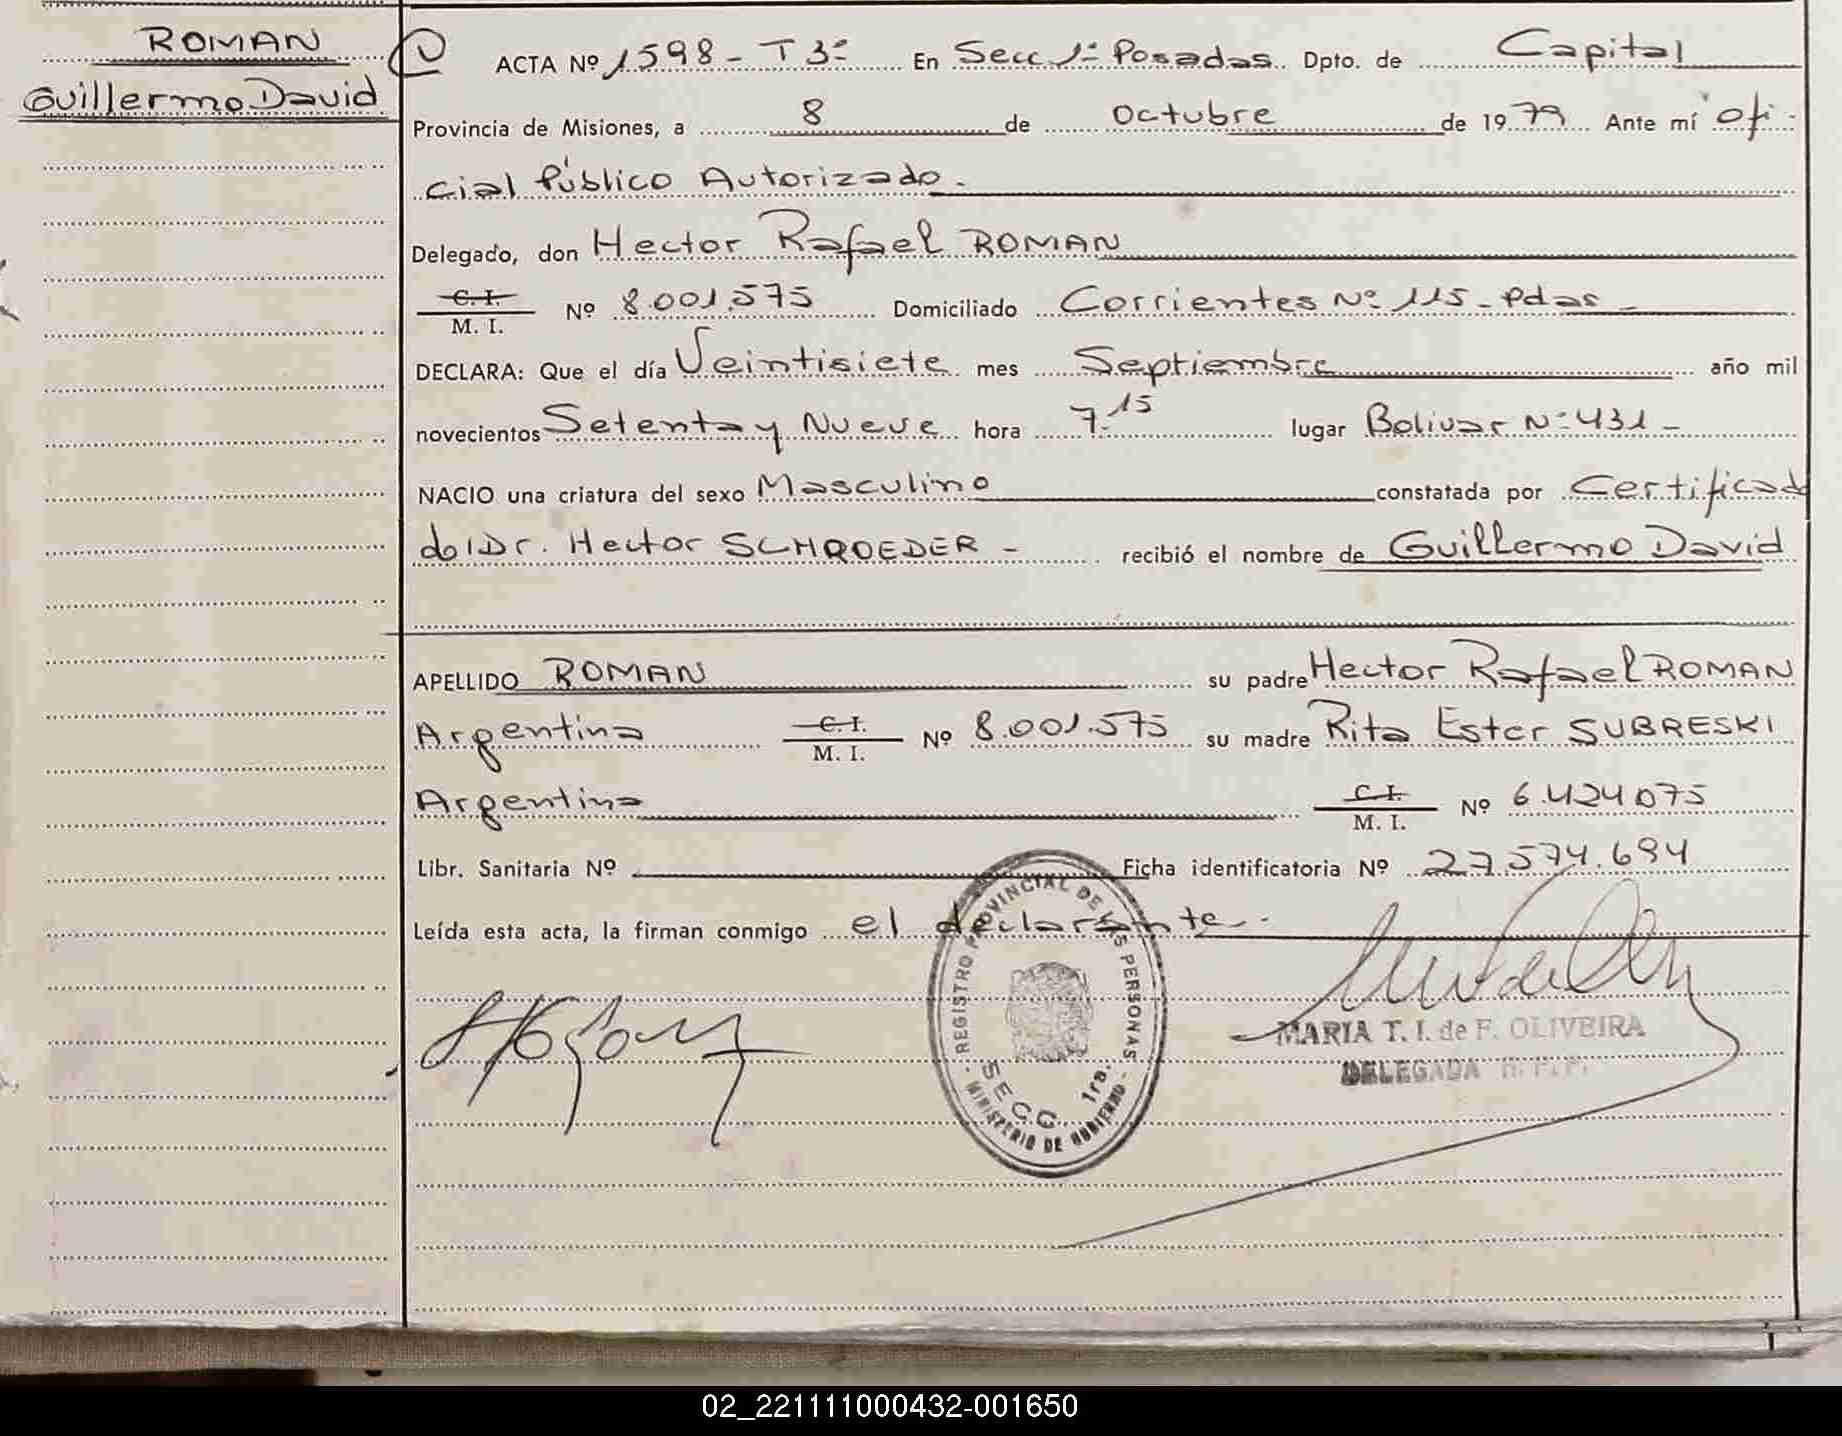 ROMAN
Guillermo David
ACTA Nº 1598 - T 3º En Secc 1º Posadas Dpto. de Capital
Provincia de Misiones, a 8 de Octubre de 1979 Ante mí Ofi-
cial Público Autorizado.
Delegado, don Hector Rafael ROMAN
C. I. / M. I. Nº 8.001.575 Domiciliado Corrientes Nº 115 - Pdas -
DECLARA: Que el día Veintisiete mes Septiembre año mil
novecientos Setenta y Nueve hora 7.15 lugar Bolivar Nº 431 -
NACIO una criatura del sexo Masculino constatada por Certificado
del Dr. Hector SCHROEDER - recibió el nombre de Guillermo David
APELLIDO ROMAN su padre Hector Rafael ROMAN
Argentina C. I. / M. I. Nº 8.001.575 su madre Rita Ester SUBRESKI
Argentina C. I. / M. I. Nº 6.424075
Libr. Sanitaria Nº Ficha identificatoria Nº 27.574.694
Leída esta acta, la firman conmigo el declarante -
REGISTRO PROVINCIAL DE LAS PERSONAS
SECC. 1ra.
MINISTERIO DE GOBIERNO
MARIA T. I. de F. OLIVEIRA
DELEGADA
02_221111000432-001650